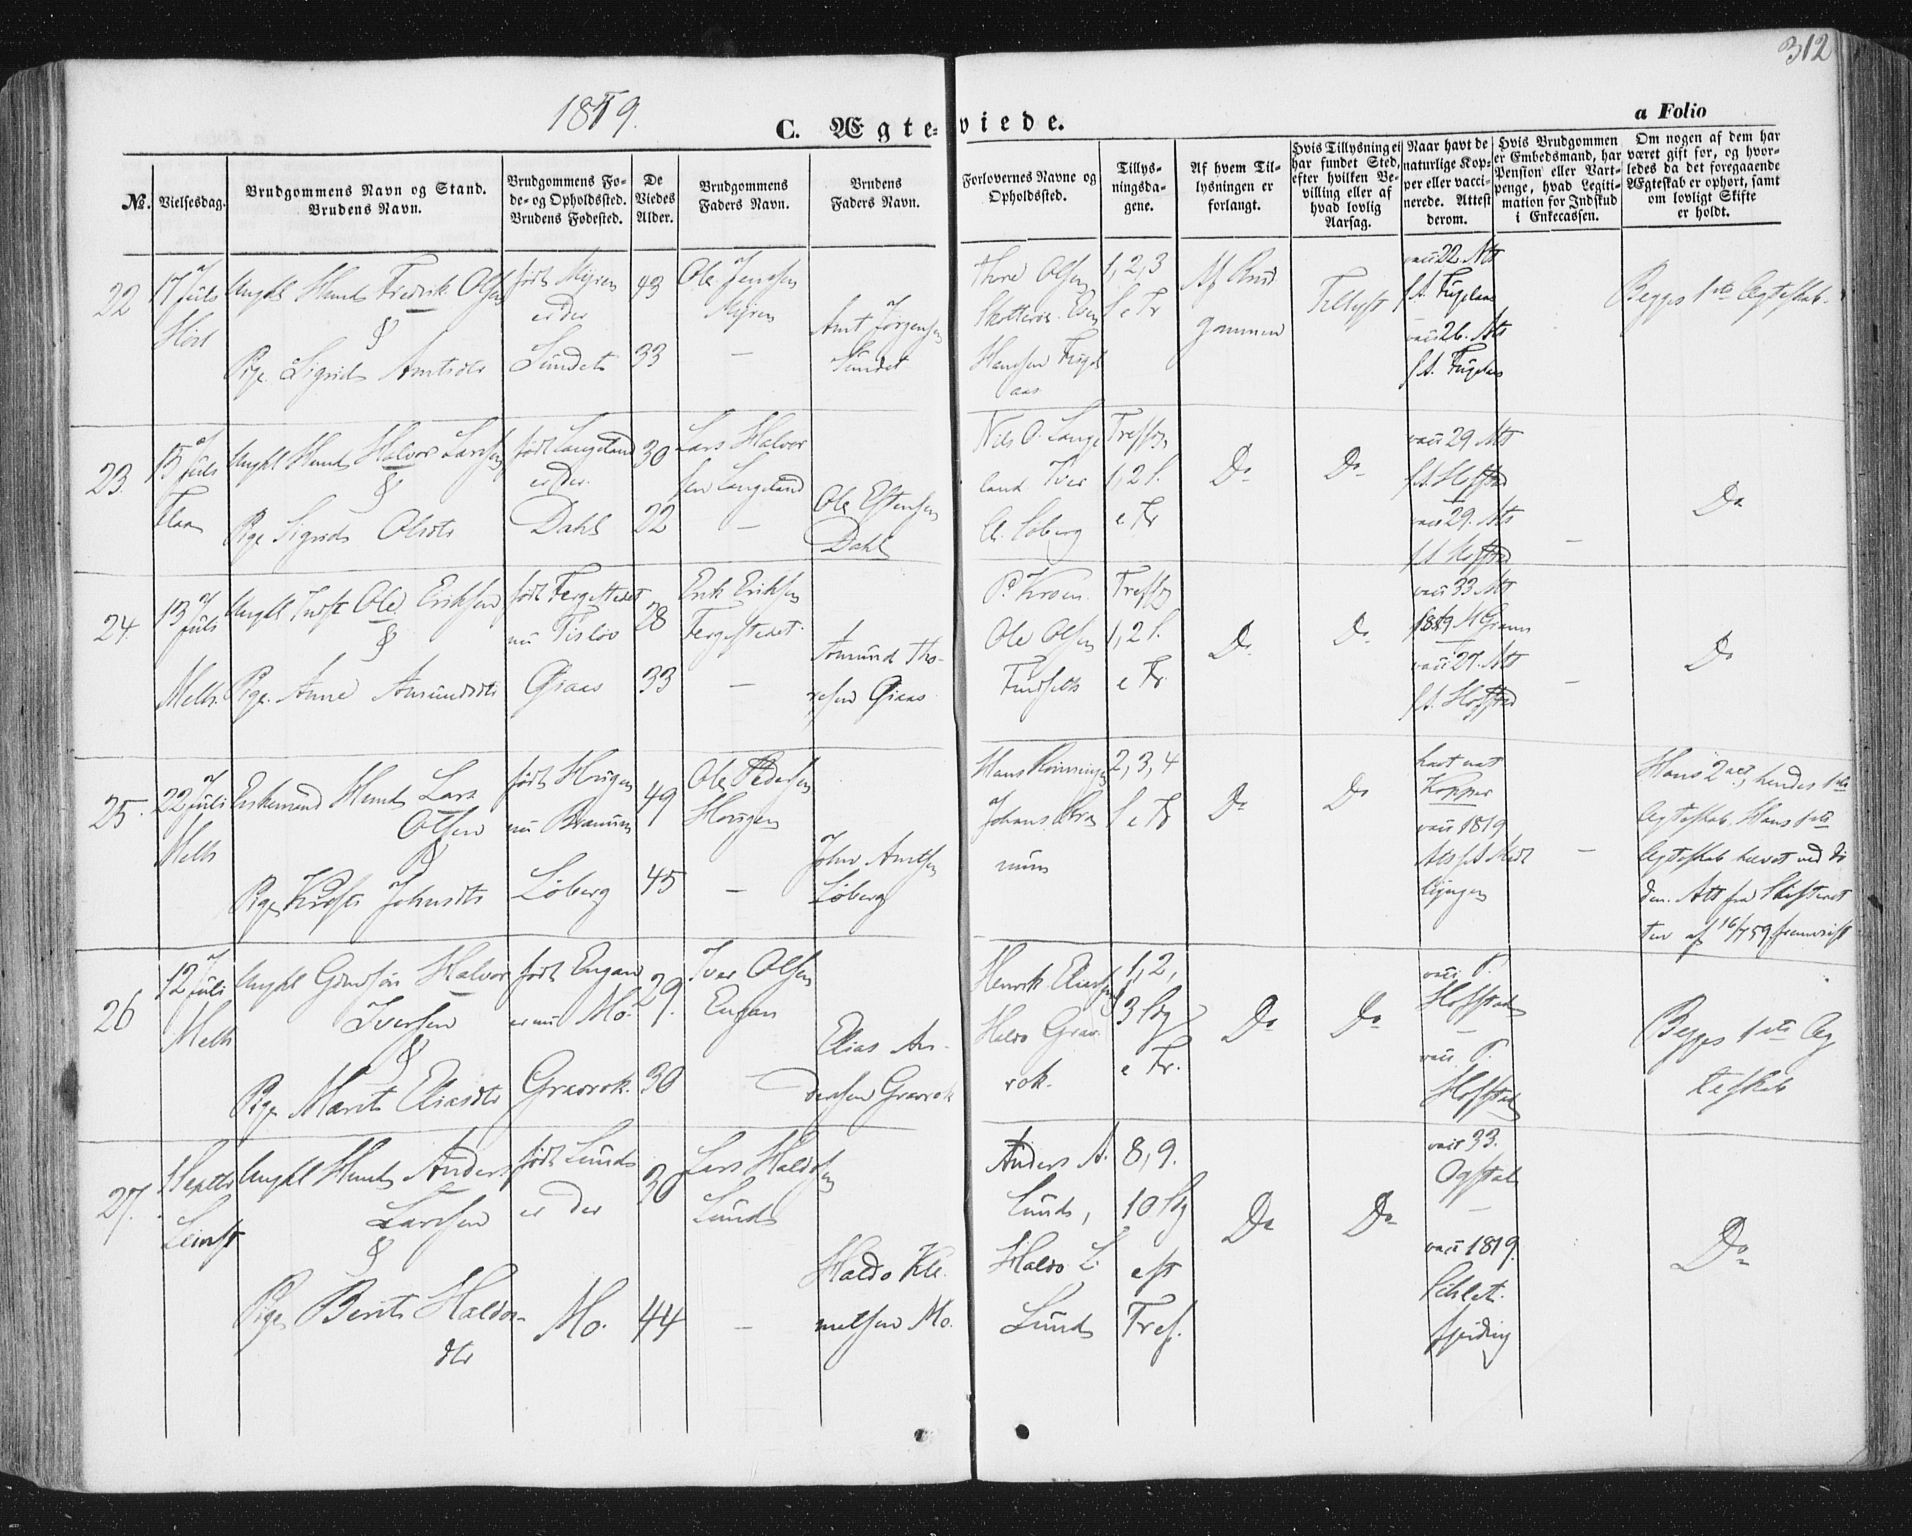 312
1859.
C. Ægteviede.
a Folio
No.
Vielsesdag.
Brudgommens Navn og Stand.
Brudens Navn.
Brudgommens Fo-
de- og Opholdssted.
Brudens Fødested.
De
Viedes
Alder.
Brudgommens
Faders Navn.
Brudens
Faders Navn.
Forlovernes Navne og
Opholdssted.
Tillys-
ningsda-
gene.
Af hvem Til-
lysningen er
forlangt.
Hvis Tillysning ei
har fundet Sted,
efter hvilken Be-
villing eller af
hvad lovlig
Aarsag.
Naar havt de
naturlige Kop-
per eller vacci-
nerede. Attest
derom.
Hvis Brudgommen
er Embedsmand, har
Pension eller Vart-
penge, hvad Legiti-
mation for Indskud
i Enkecassen.
Om nogen af dem har
været gift før, og hvor-
ledes da det foregaaende
Ægteskab er ophørt, samt
om lovligt Skifte
er holdt.
22
17 Juli
Ungkl Huusm Fredrik Olsen
&
Pige Sigrid Arntsdtr
født Myren
er der
Sundet
43
33
Ole Jensen
Myren
—
Arnt Jørgensen
Sundet
Thore Olsen
Hansen Fugel
aas
1, 2, 3
S e Tr
Af Brud
gommen
Tillyst
vacc 22. Att
f.A. Fugelaas
vacc 26. Att
f.A. Fugelaas
Begges 1ste Ægteskab.
23.
15 Juli
Flaa
Ungkl Huusm Halvor Larssen
&
Pige Sigrid Olsdtr
født Langeland
er der.
Dahl
30
22
Lars Halvor
sen Langeland
—
Ole Estensen
Dahl
Nils O. Lange
land. Iver
A. Loberg
1, 2 S.
e Tr
Do
Do
vacc 29 Att
f.A. Hofstad
—
vacc 29. Att
f.A. Hofstad
—
Do
24.
13 Juli
Melh.
Ungkl Inds. Ole Eriksen
&
Pige Anne Amundsdtr
født Fergestedet
nu Tislov
Gjaas
28
33
Erik Eriksen
Fergestedet
—
Amund Tho-
resen Gjaas
P. Kroen.
Ole Olsen
1, 2 S.
e Tr
Do
Do
vacc 33 Att
—
vacc 27. Att
f.A. Hofstad
—
Do
25.
22 Juli
Melh
Enkemand Huusm Lars
Olsen
&
født Hougen
nu Bramum
Løberg
49
45
Ole Pedersen
Hougen
—
John Arntsen
Løberg
2, 3, 4
S e Tr
Do
Do
havt nat
Kopper
vacc 1819
—
Hans 2det, hendes 1ste
Ægteskab. Hans 1ste
Ægteskab hævet ved Dø
den. Att fra Skifteret
ten af 16/7 59 fremvist
26
12 Juli
Melh
Ungkl Gaardsøn Halvor
Iversen
&
Pige Marit Eliasdtr
født Engan
er nu Mo.
Gravrok.
29.
30
Iver Olsen
Engan
—
Elias An-
dersen Gravrok
Henrik Eliassen
Haldo Grav
rok.
1, 2,
3 Sø
e Tr.
Do
Do
vacc P.
Hofstad
—
vacc P.
Hofstad
Begges 1ste Æg
teskab
27.
1 Septbr
Leinst
Ungkl Huusm Anders
Larssen
&
Pige Berit Haldos-
dtr
født Lund
er der
Mo.
30
44
Lars Haldosen
Lund
—
Haldo Kle-
metsen Mo.
Anders A.
Lund,
Haldo L.
Lund
8, 9.
10 Sø
eft
Tref.
Do
Do
vacc 33.
Ogstad
—
vacc 1819.
Do